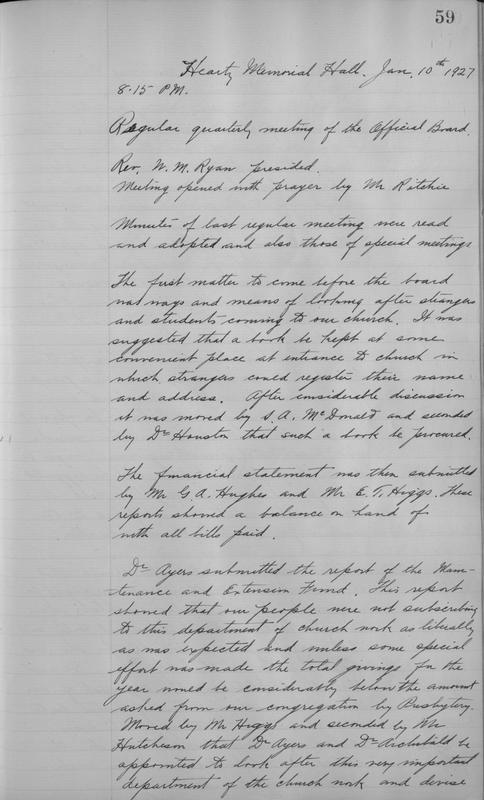 59
Heartz Memorial Hall. Jan. 10th 1927
8.15 P.M.
Regular quarterly meeting of the Official Board.
Rev. W. M. Ryan presided.
Meeting opened with prayer by Mr Ritchie
Minutes of last regular meeting were read
and adopted and also those of special meetings
The first matter to come before the board
was ways and means of looking after strangers
and students coming to our church. It was
suggested that a book be kept at some
convenient place at entrance to church in
which strangers could register their name
and address. After considerable discussion
it was moved by S. A. McDonald and seconded
by Dr Houston that such a book be procured.
The financial statement was then submitted
by Mr G. A. Hughes and Mr E. T. Higgs. These
reports showed a balance on hand of
with all bills paid.
Dr Ayers submitted the report of the Main-
tenance and Extension Fund. This report
showed that our people were not subscribing
to this department of church work as liberally
as was expected and unless some special
effort was made the total givings for the
year would be considerably below the amount
asked from our congregation by Presbytery.
Moved by Mr Higgs and seconded by Mr
Hutcheson that Dr Ayers and Dr Archibald be
appointed to look after this very important
department of the church work and devise